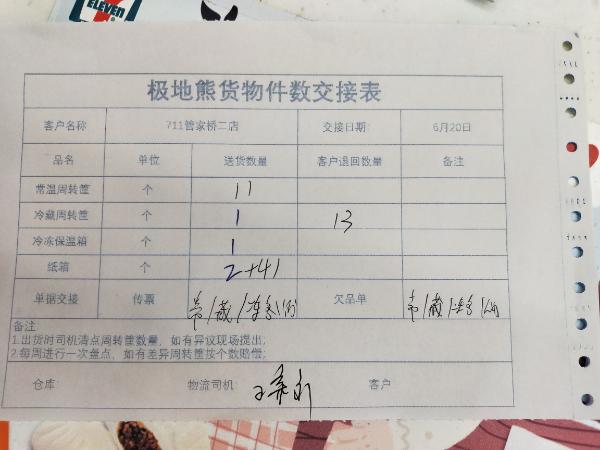 ELEVEN
极地熊货物件数交接表
客户名称 711管家桥二店 交接日期: 6月20日
品名 单位 送货数量 客户退回数量 备注
常温周转筐 个 11
冷藏周转筐 个 1 13
冷冻保温箱 个 1
纸箱 个 2+41
单据交接 传票 常/藏/ 欠品单 常/藏/
备注:
1.出货时司机清点周转筐数量，如有异议现场提出;
2.每周进行一次盘点，如有差异周转筐按个数赔偿;
仓库: 物流司机: 客户